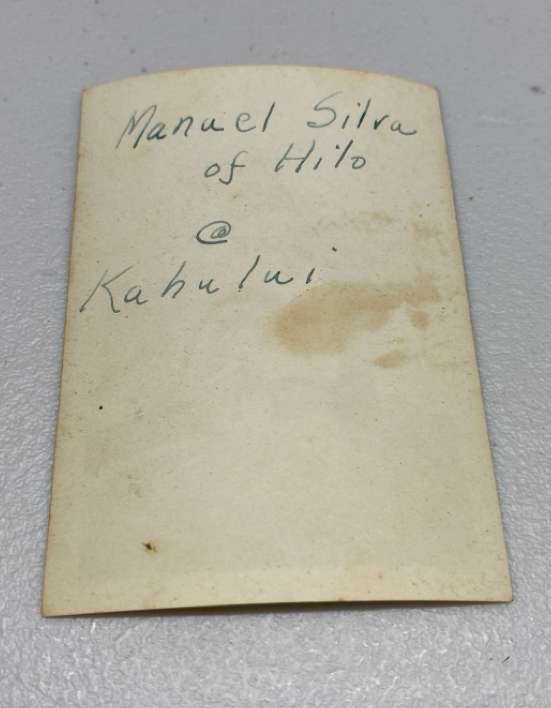 Manuel Silva
of Hilo
@
Kahului